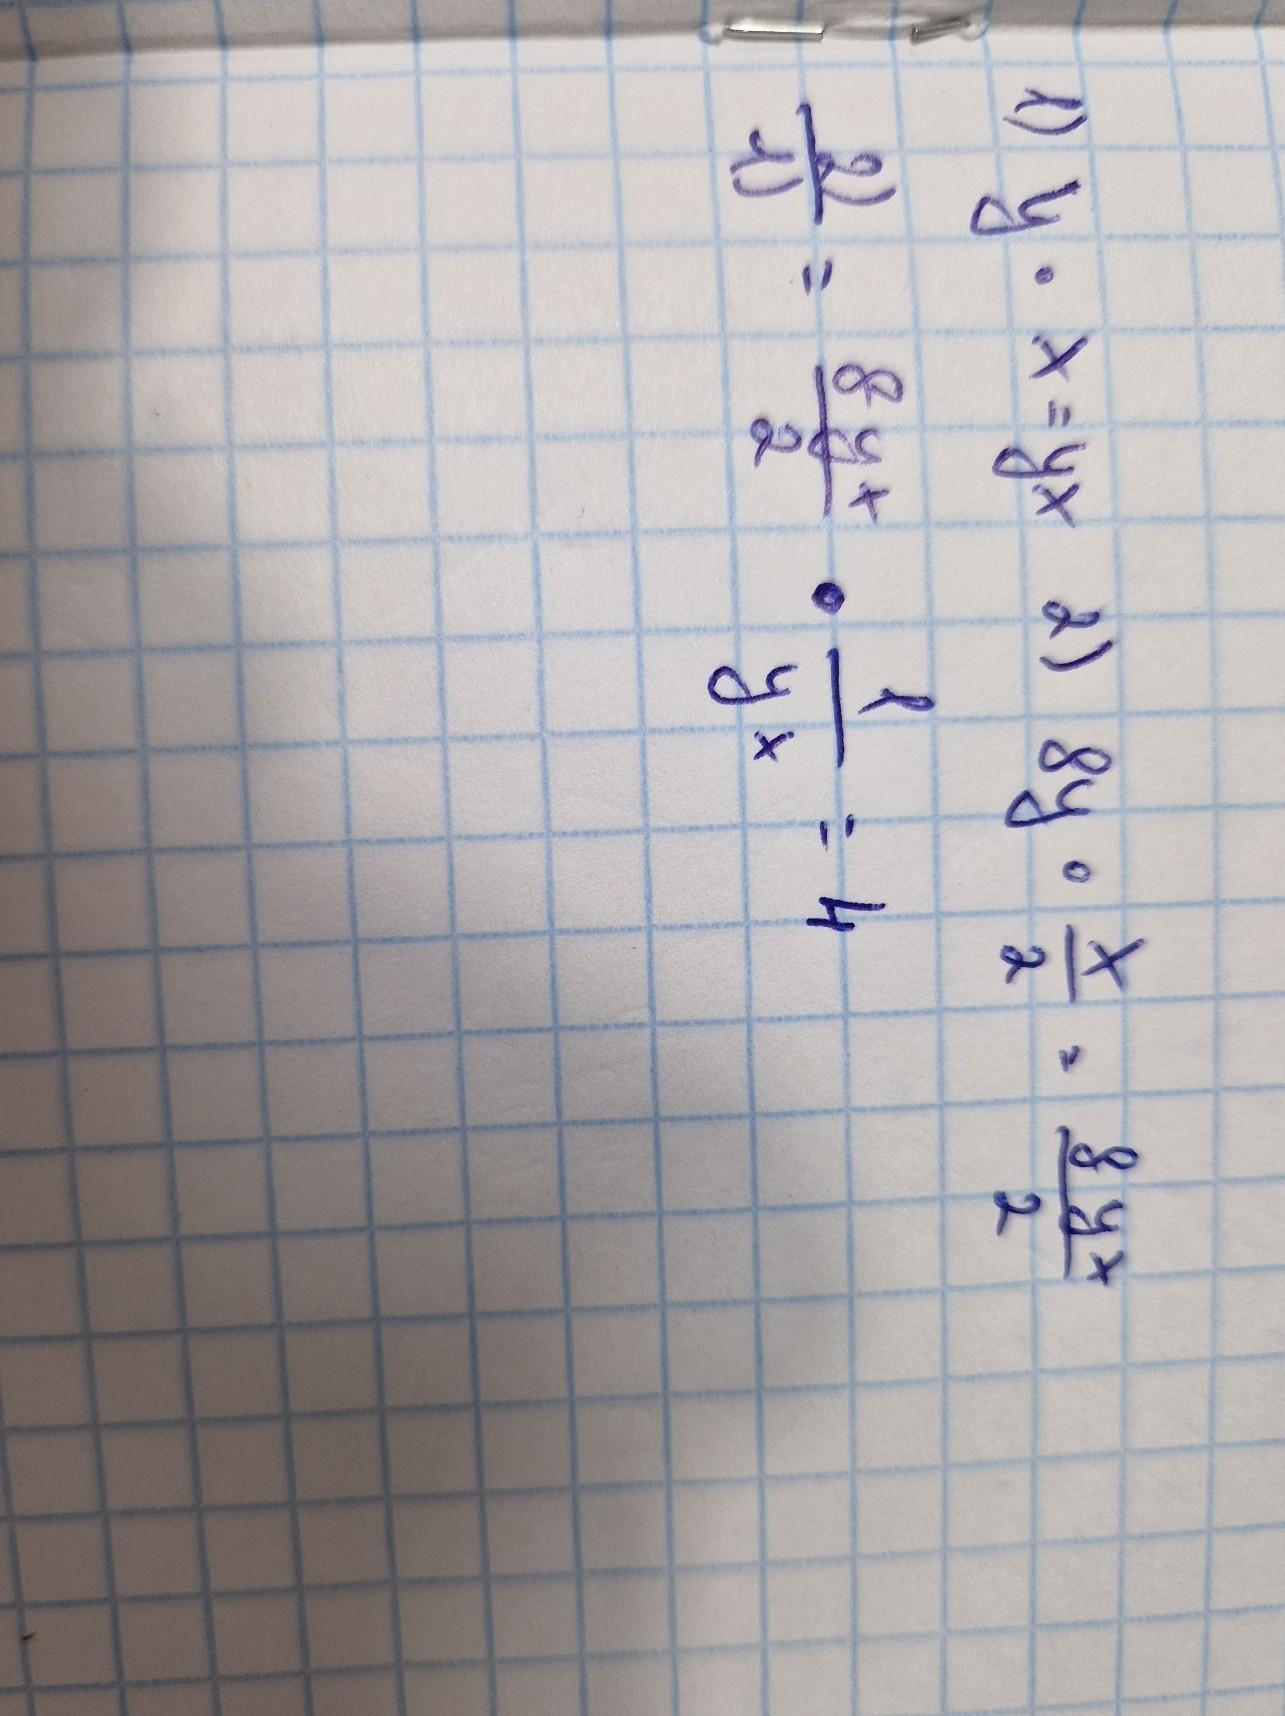 1) y · x = yx 2) 8y · x/2 = 8yx/2
2)/1) = 8yx/2 · 1/yx = 4